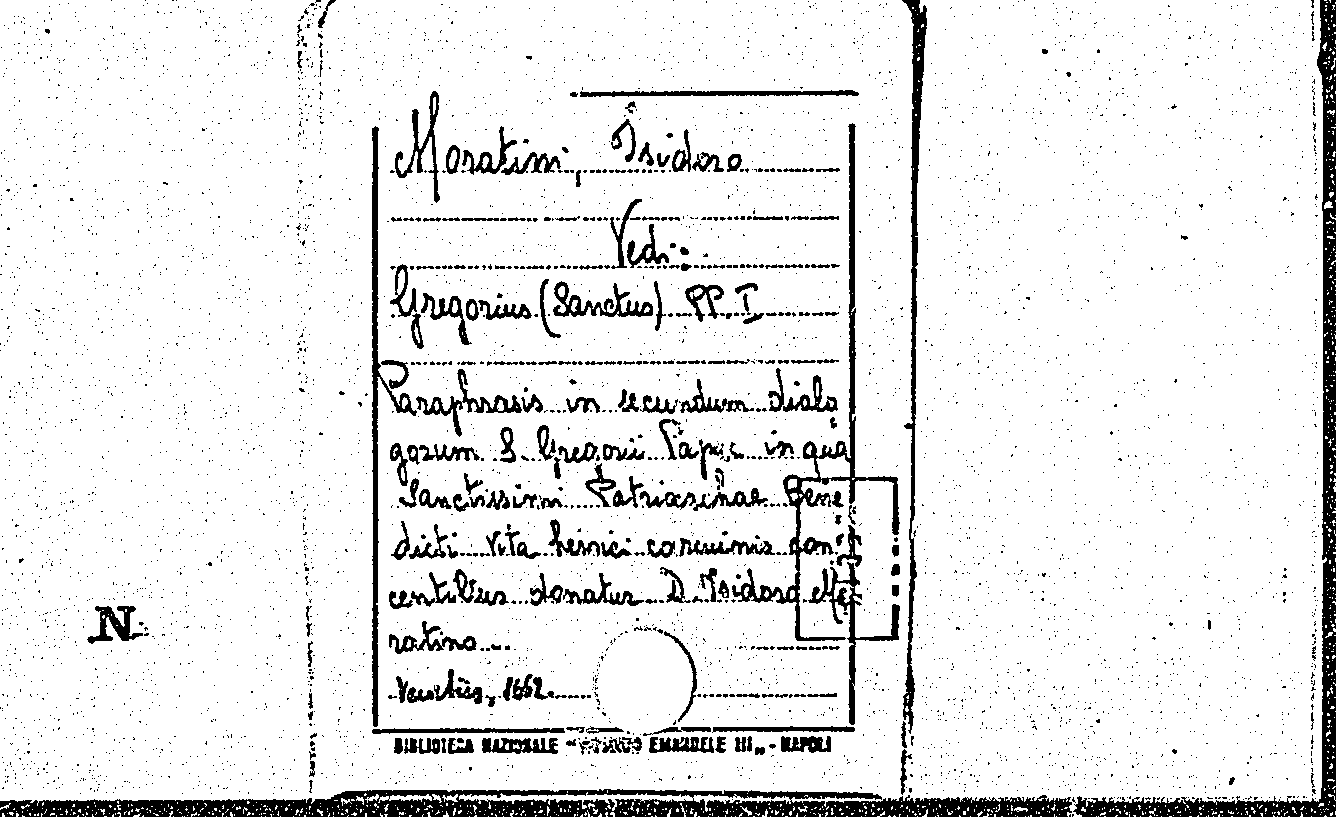 Moratini, Isidoro
Vedi:
Gregorius (Sanctus) PP. I
Paraphrasis in secundum dialo
gorum S. Gregorii Papae in qua
Sanctissimi Patriarchae Bene
dicti vita heroici carminis con
centibus donatur D. Isidoro Mo
ratino...
Venetiis, 1662.
N
BIBLIOTECA NAZIONALE "VITTORIO EMANUELE III" - NAPOLI